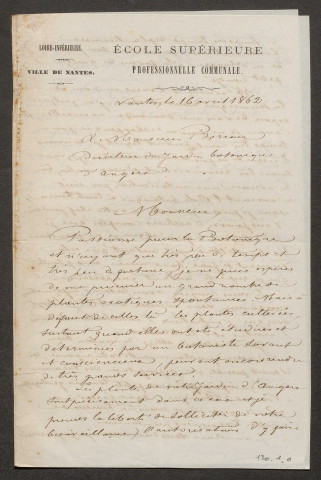 LOIRE-INFÉRIEURE.
VILLE DE NANTES.
ÉCOLE SUPÉRIEURE
PROFESSIONNELLE COMMUNALE.
Nantes, le 16 avril 1862
A Monsieur Boreau
Directeur du Jardin botanique
d'Angers
Monsieur
Passionné pour la Botanique
et n'ayant que très peu de temps et
très peu de fortune, je ne puis espérer
de me procurer un grand nombre de
plantes exotiques spontanées. Mais à
défaut de celles là les plantes cultivées,
surtout quand elles ont été étudiées et
déterminées par un botaniste savant
et consciencieux, peuvent encore rendre
de très grands services.
Les plantes de votre Jardin d'Angers
sont précisément dans ce cas et je
prends la liberté de solliciter de votre
bienveillance l'autorisation d'y faire